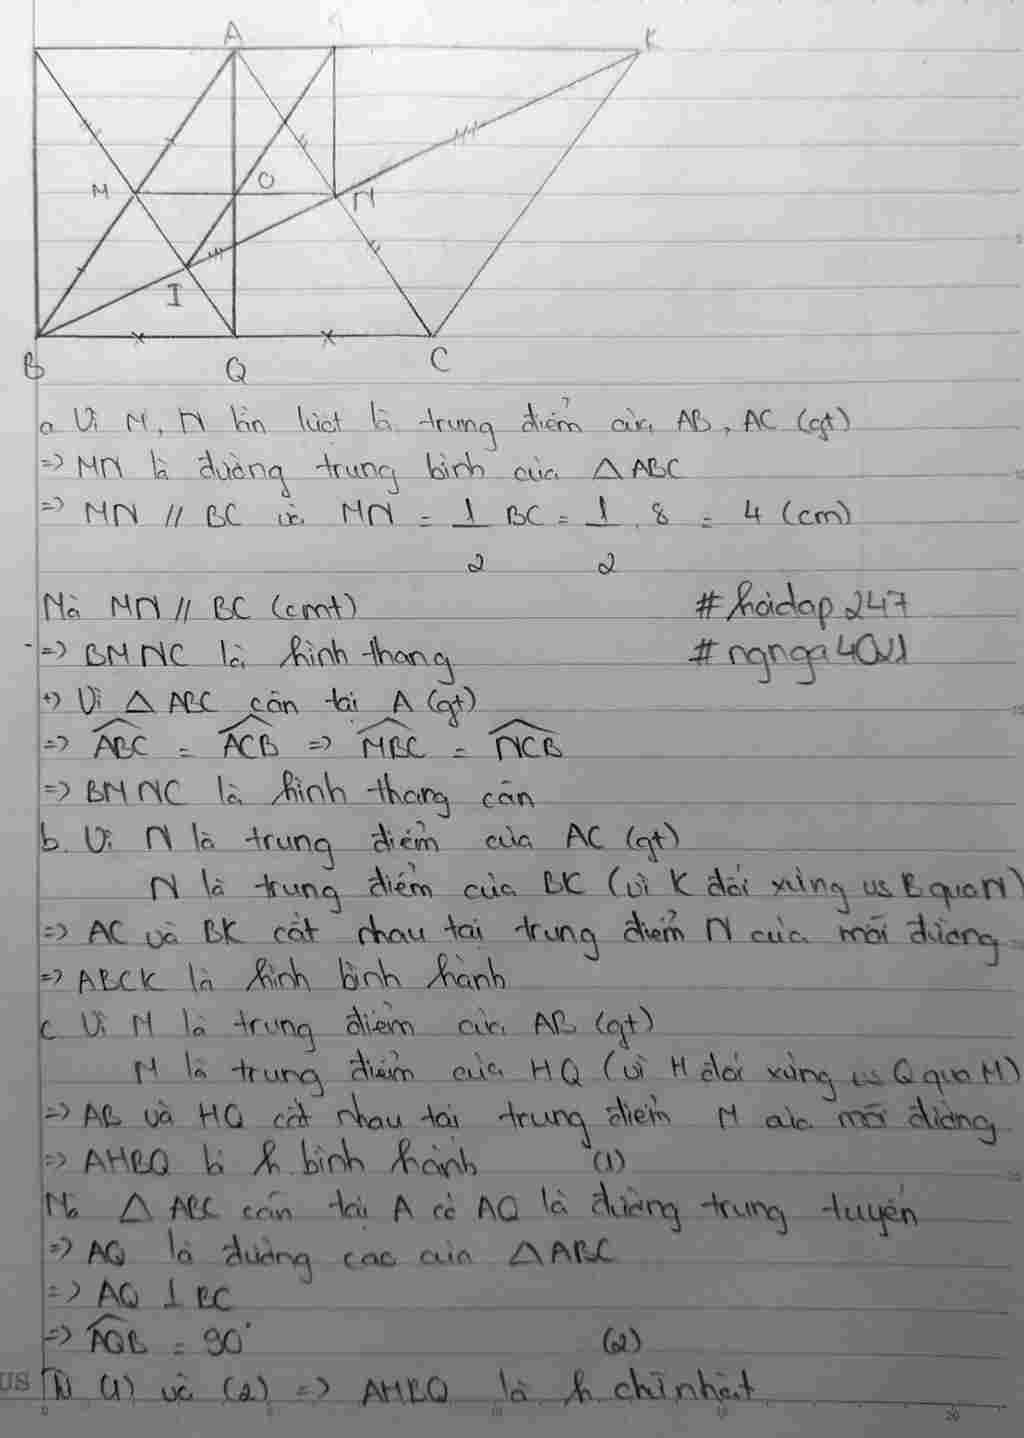 A
K
M
O
N
I
B
Q
C
a. Vì M, N lần lượt là trung điểm của AB, AC (gt)
=> MN là đường trung bình của △ABC
=> MN // BC và MN = 1/2 BC = 1/2 . 8 = 4 (cm)
Mà MN // BC (cmt)
#hoidap247
=> BMNC là hình thang
#ngnga4021
+) Vì △ ABC cân tại A (gt)
=> \widehat{ABC} = \widehat{ACB} => \widehat{MBC} = \widehat{NCB}
=> BMNC là hình thang cân
b. Vì N là trung điểm của AC (gt)
N là trung điểm của BK (vì K đối xứng vs B qua N)
=> AC và BK cắt nhau tại trung điểm N của mỗi đường
=> ABCK là hình bình hành
c. Vì M là trung điểm của AB (gt)
M là trung điểm của HQ (vì H đối xứng vs Q qua M)
=> AB và HQ cắt nhau tại trung điểm M của mỗi đường
=> AHBQ là h.bình hành (1)
Mà △ ABC cân tại A có AQ là đường trung tuyến
=> AQ là đường cao của △ABC
=> AQ ⊥ BC
=> \widehat{AQB} = 90° (2)
Từ (1) và (2) => AHBQ là h.chữ nhật